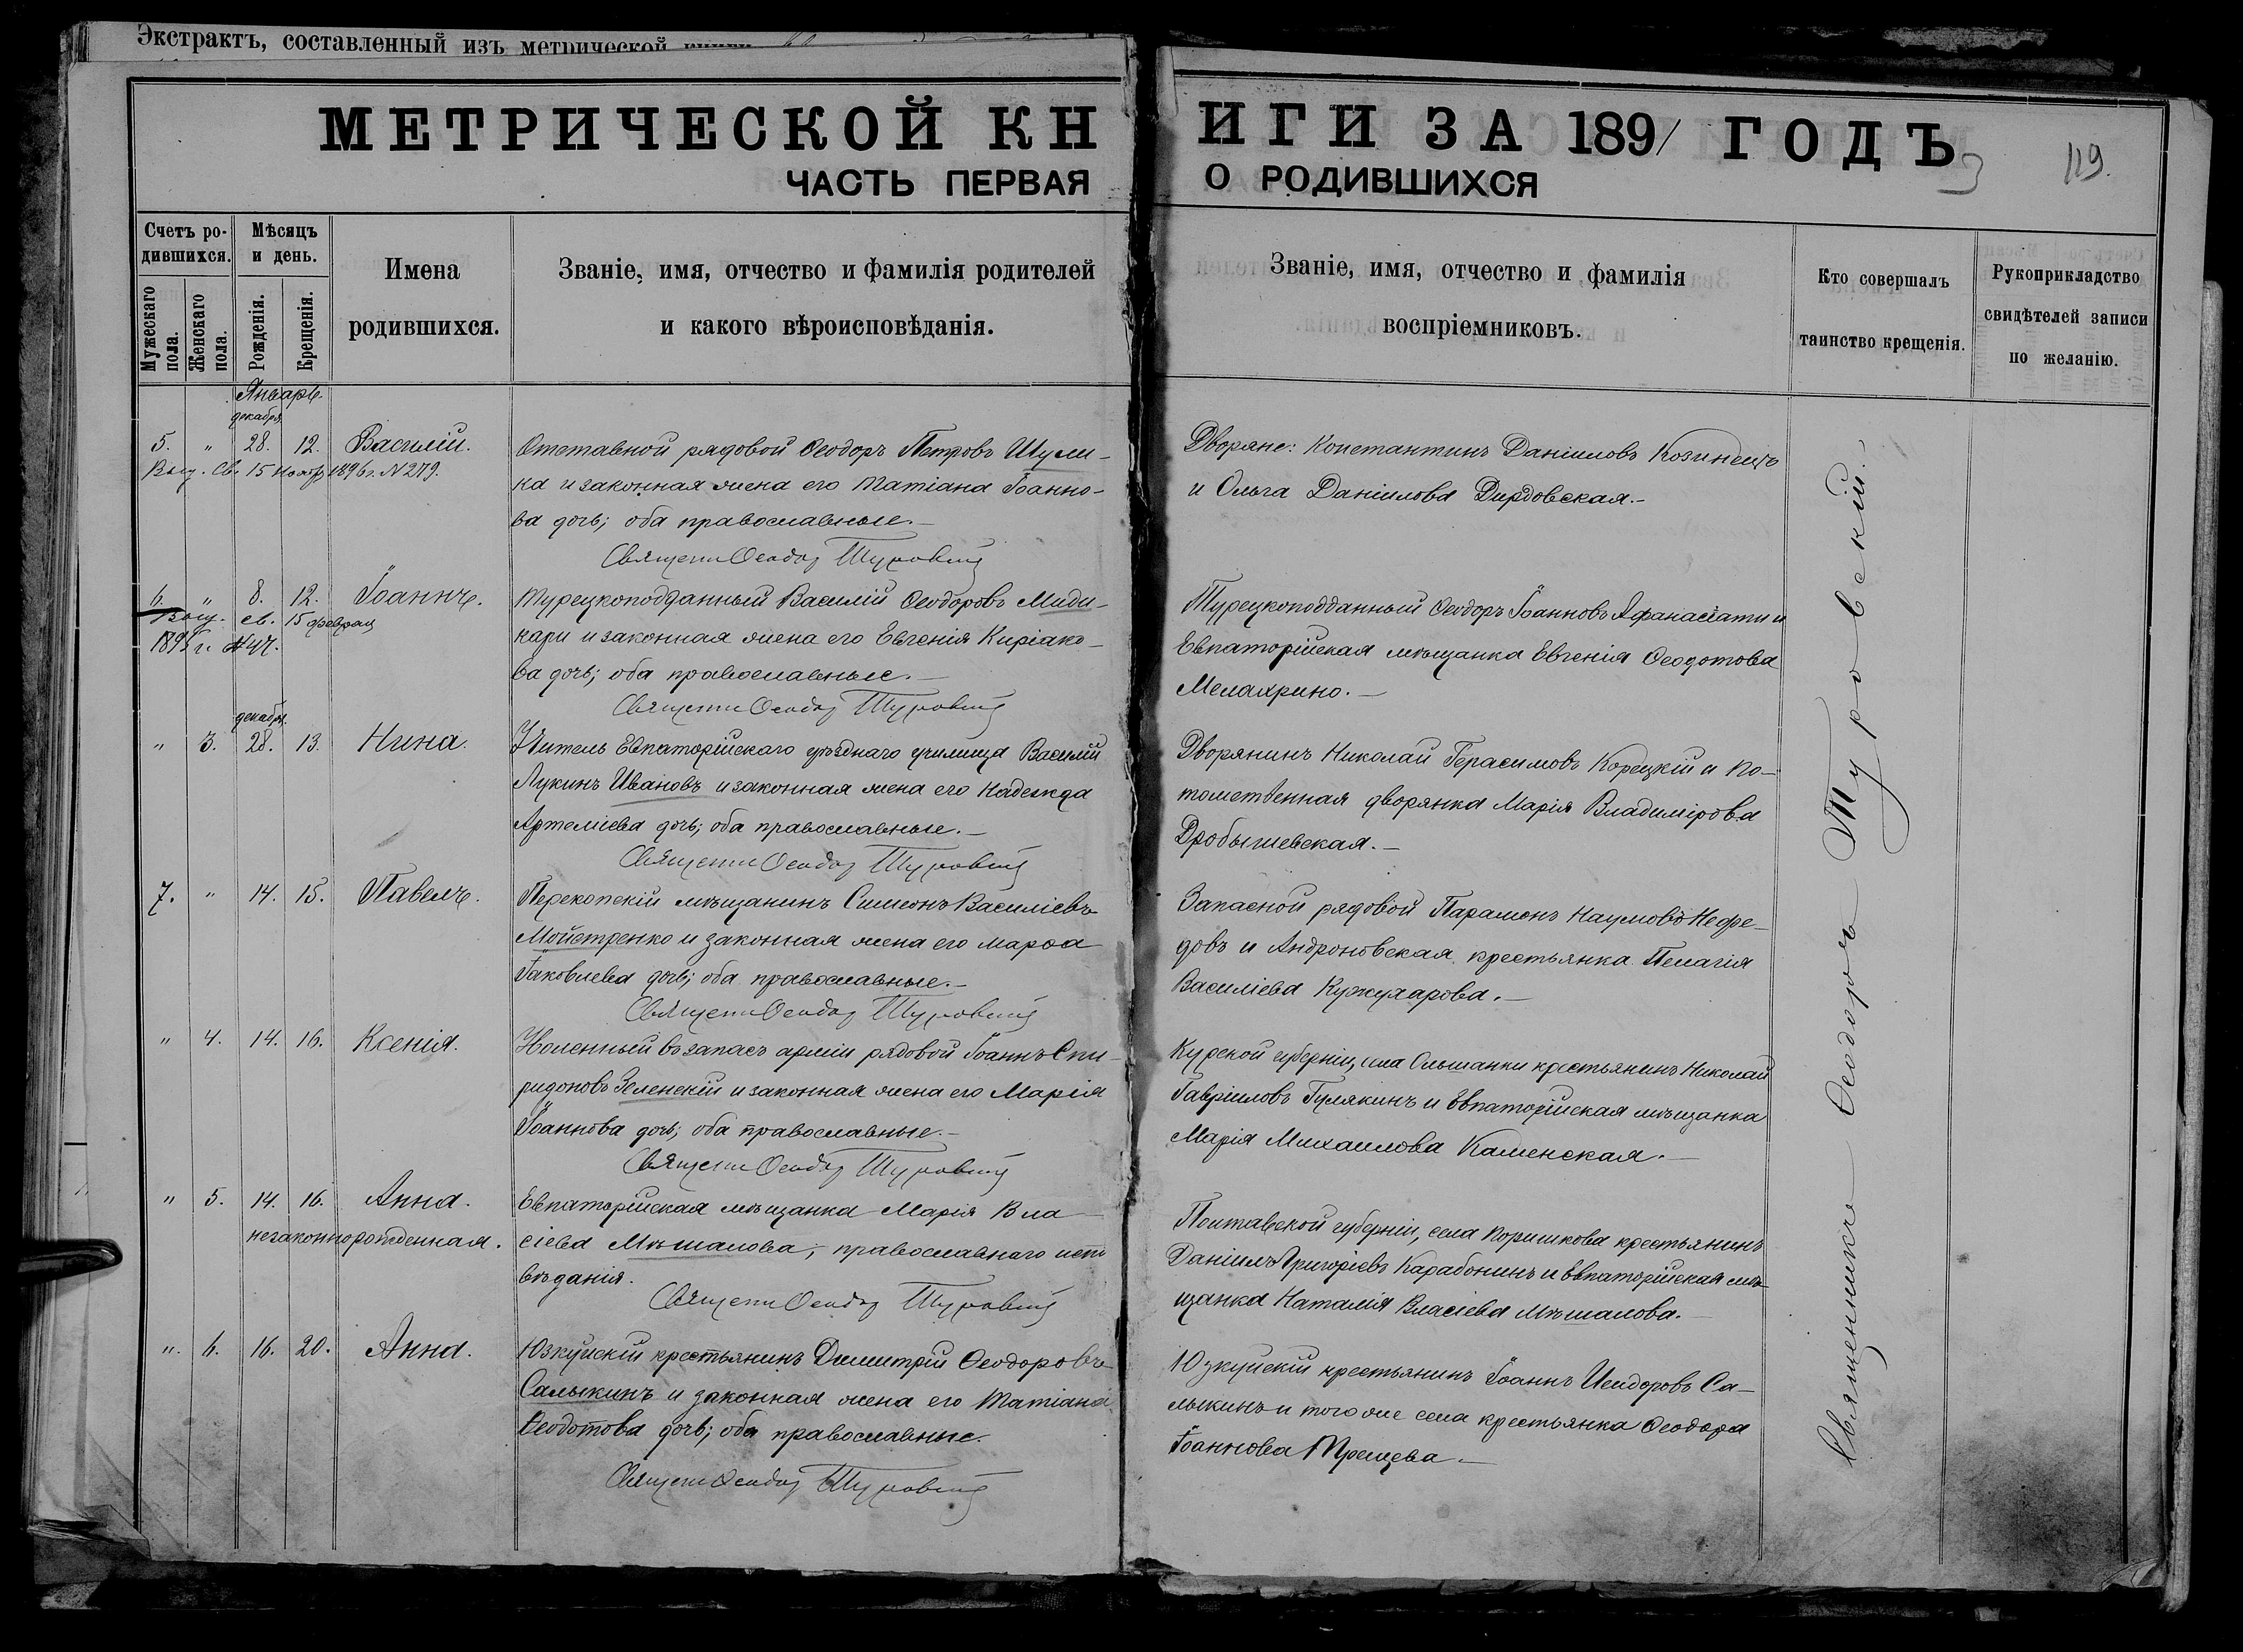 Экстрактъ, составленный изъ метрической книги
МЕТРИЧЕСКОЙ КНИГИ ЗА 1891 ГОДЪ
119.
ЧАСТЬ ПЕРВАЯ О РОДИВШИХСЯ
Счетъ родившихся.
Мужескаго пола.
Женскаго пола.
Мѣсяцъ и день.
Рожденія.
Крещенія.
Имена родившихся.
Званіе, имя, отчество и фамилія родителей
и какого вѣроисповѣданія.
Званіе, имя, отчество и фамилія
воспріемниковъ.
Кто совершалъ
таинство крещенія.
Рукоприкладство
свидѣтелей записи
по желанію.
Январь.
декабря
5. " 28. 12. Василій.
Выд. св. 15 Ноябр 1896 г. N 279.
Отставной рядовой Ѳеодоръ Петровъ Шули-
ка и законная жена его Татіана Іоанно-
ва дочь; оба православные.-
Священн Ѳеодор Туровскій
Дворяне: Константинъ Даніиловъ Козинецъ
и Ольга Даніилова Дирдовская.-
6. " 8. 12. Іоаннъ.
Выд. св. 15 февраля
Турецкоподданный Василій Ѳеодоровъ Миди-
кари и законная жена его Евгенія Киріако-
ва дочь; оба православные.-
Священн Ѳеодор Туровскій
Турецкоподданный Ѳеодоръ Іоанновъ Афанасіати и
Евпаторійская мѣщанка Евгенія Ѳеодотова
Мелахрино.-
декабр.
" 3. 28. 13. Нина.
Учитель Евпаторійскаго уѣзднаго училища Василій
Лукинъ Ивановъ и законная жена его Надежда
Артеміева дочь; оба православные.-
Священн Ѳеодор Туровскій
Дворянинъ Николай Герасимовъ Корецкій и по-
томственная дворянка Марія Владимірова
Дробышевская.-
7. " 14. 15. Павелъ.
Перекопскій мѣщанинъ Симеонъ Василіевъ
Мойстренко и законная жена его Марѳа
Іаковлева дочь; оба православные.-
Священн Ѳеодор Туровскій
Запасной рядовой Парамонъ Наумовъ Нефе-
довъ и Андроновская крестьянка Пелагія
Василіева Кужухарова.-
" 4. 14. 16. Ксенія.
Уволенный въ запасъ арміи рядовой Іоаннъ Спи-
ридоновъ Зеленскій и законная жена его Марія
Іоаннова дочь; оба православные.-
Священн Ѳеодор Туровскій
Курской губерніи, села Ольшанки крестьянинъ Николай
Гавріиловъ Гулякинъ и Евпаторійская мѣщанка
Марія Михаилова Каменская.-
" 5. 14. 16. Анна.
незаконнорожденная.
Евпаторійская мѣщанка Марія Вла
сіева Мѣшалова, православнаго испо
вѣданія.
Священн Ѳеодор Туровскій
Полтавской губерніи, села Поришкова крестьянинъ
Даніилъ Григоріевъ Карабонинъ и Евпаторійская мѣ-
щанка Наталія Власіева Мѣшалова.
" 6. 16. 20. Анна.
Юзкуйскій крестьянинъ Димитрій Ѳеодоровъ
Салыкинъ и законная жена его Татіана
Ѳеодотова дочь; оба православные.
Священн Ѳеодор Туровскій
Юзкуйскій крестьянинъ Іоаннъ Исидоровъ Са-
лыкинъ и того же села крестьянка Ѳеодора
Іоаннова
Священникъ Ѳеодоръ Туровскій.-